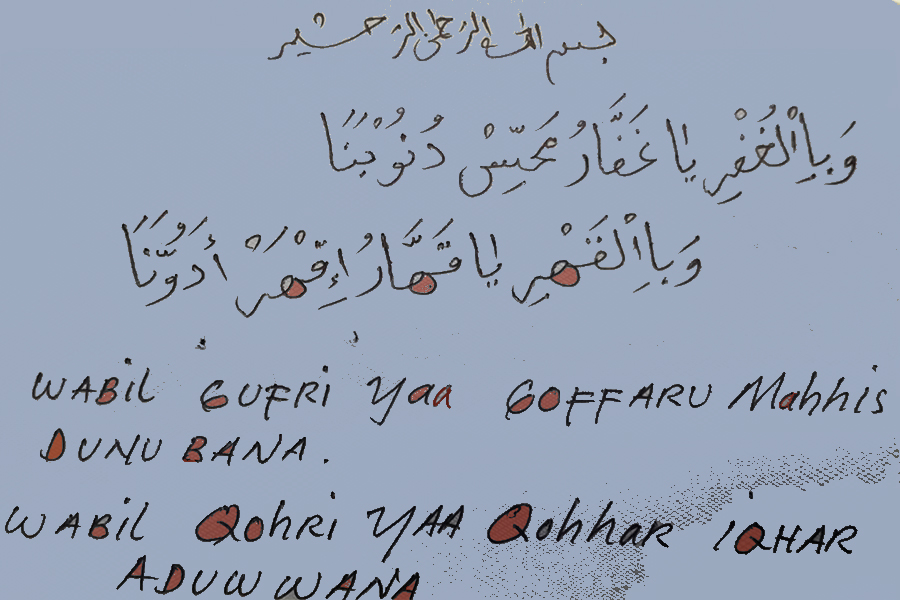 بسم الله الرحمن الرحيم
وَبِاالْغُفْرِ يَا غَفَّارُ مَحِّيسْ دُنُوْبَنَا
وَبِاالْقَهْرِ يَا قَهَّارُ إِقْهَرْ أَدُوَّنَا
WABIL GUFRI Yaa GOFFARU Mahhis
DUNUBANA.
WABIL QohRi YAA Qohhar IQHAR
ADUWWANA